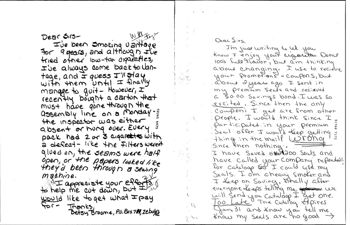 Dear Sirs-
I've been smoking Vantage
for 9 years, and although I've
tried other low-tar cigarettes,
I've always come back to Van-
tage, and I guess I'll stay
with them until I finally
manage to quit. However, I
recently bought a carton that
must have gone through the
assembly line on a Monday-
the inspector was either
absent or hung over. Every
pack had 2 or 3 cigarettes with
a defect- like the filters weren't
glued on, the seams were half
open, or the papers looked like
they'd been through a sewing
machine.
I appreciate your efforts
to help me cut down, but I
would like to get what I pay
for. Thanks,
Betsy Broome, PO Box
Dear Sirs
I'm just writing to let you
know I enjoy your
but am thinking
about changing. I use to receive
your promotional-coupons, but
about a year ago I sent in
my premium Seals and received
a Savings bond. I was so
excited. Since then the only
coupons I get are from other
people. I would think since I
participated in your Premium
Seal offer I would keep getting
Since then nothing.
I have Saved Seals and
have called your Company repeatedly
for catalogs so I could use my
Seals. I am a heavy smoker and
I keep on Saving, finally after
everyone keeps telling me we
will send you Catalog I get one
Too Late! The Catalog expires
Jan 31 and now you tell me
know my Seals are no good